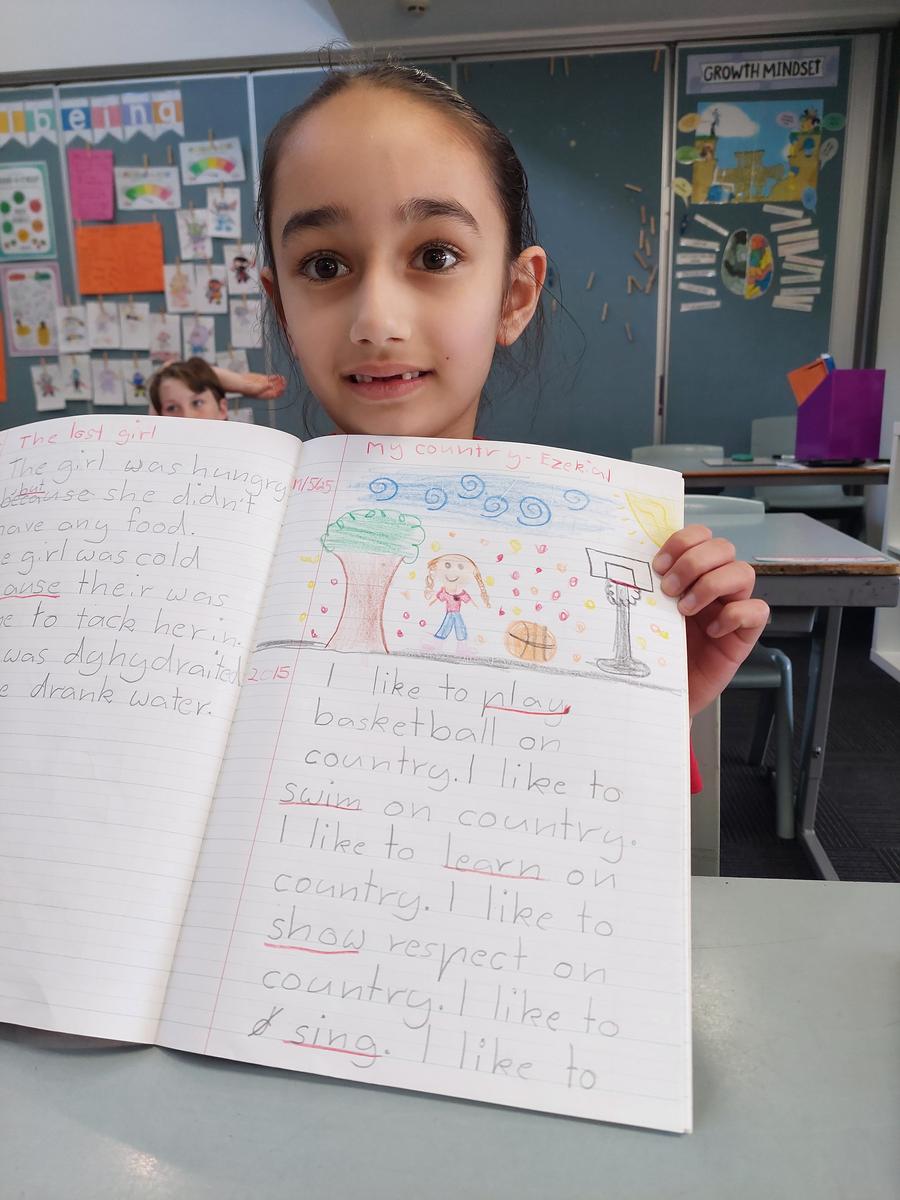 being
GROWTH MINDSET
The last girl
The girl was hungry
because but she didn't
have any food.
e girl was cold
ause their was
e to tack her in.
was dyhydraited
e drank water.
My country - Ezekial
I like to play
basketball on
country. I like to
swim on country.
I like to learn on
country. I like to
show respect on
country. I like to
sing. I like to